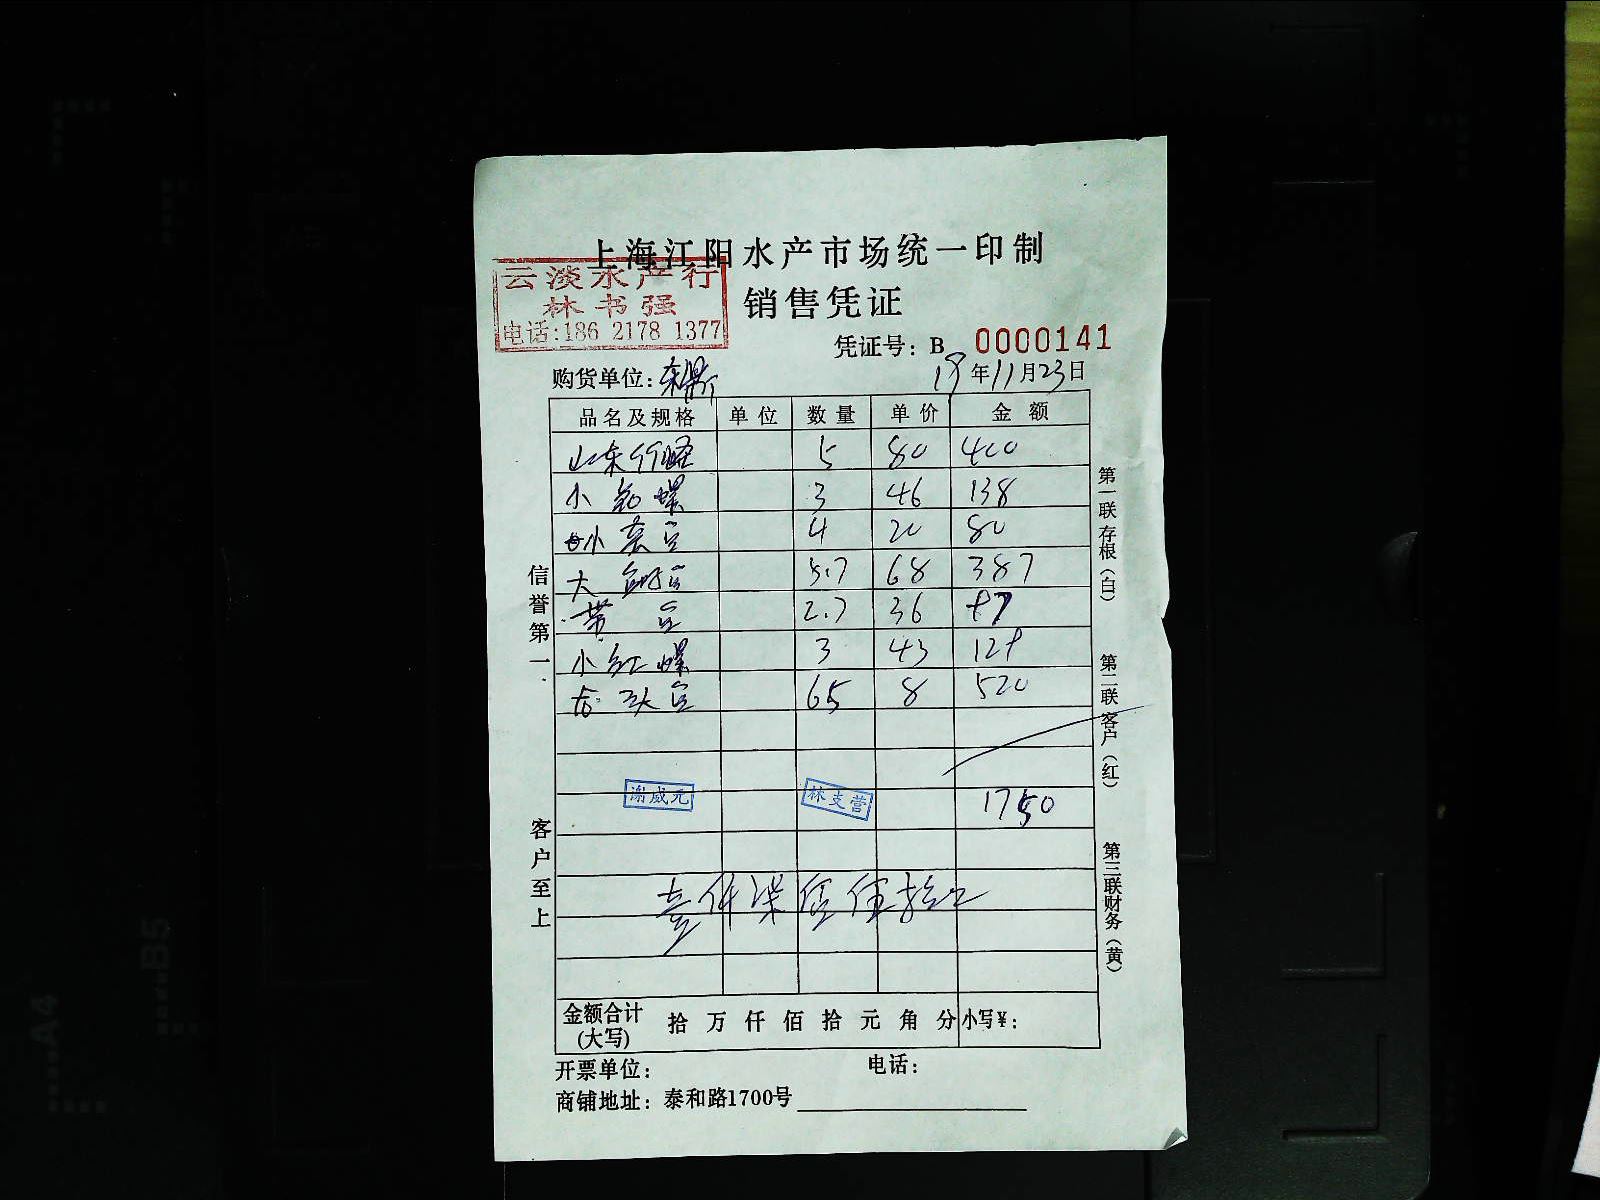 上海江阳水产市场统一印制
云淡水产行
林书强
电话:186 2178 1377
销售凭证
凭证号: B 0000141
购货单位:
19年11月23日
品名及规格 单位 数量 单价 金额
山东 5 80 400
小 螺 3 46 138
小 4 20 80
大 5.7 68 387
带 2.7 36 97
小红螺 3 43 129
65 8 520
谢威元 林支营 1750
壹仟柒佰伍拾元
金额合计(大写) 拾 万 仟 佰 拾 元 角 分 小写¥:
开票单位: 电话:
商铺地址: 泰和路1700号
信誉第一
客户至上
第一联存根(白)
第二联客户(红)
第三联财务(黄)
A4
B5